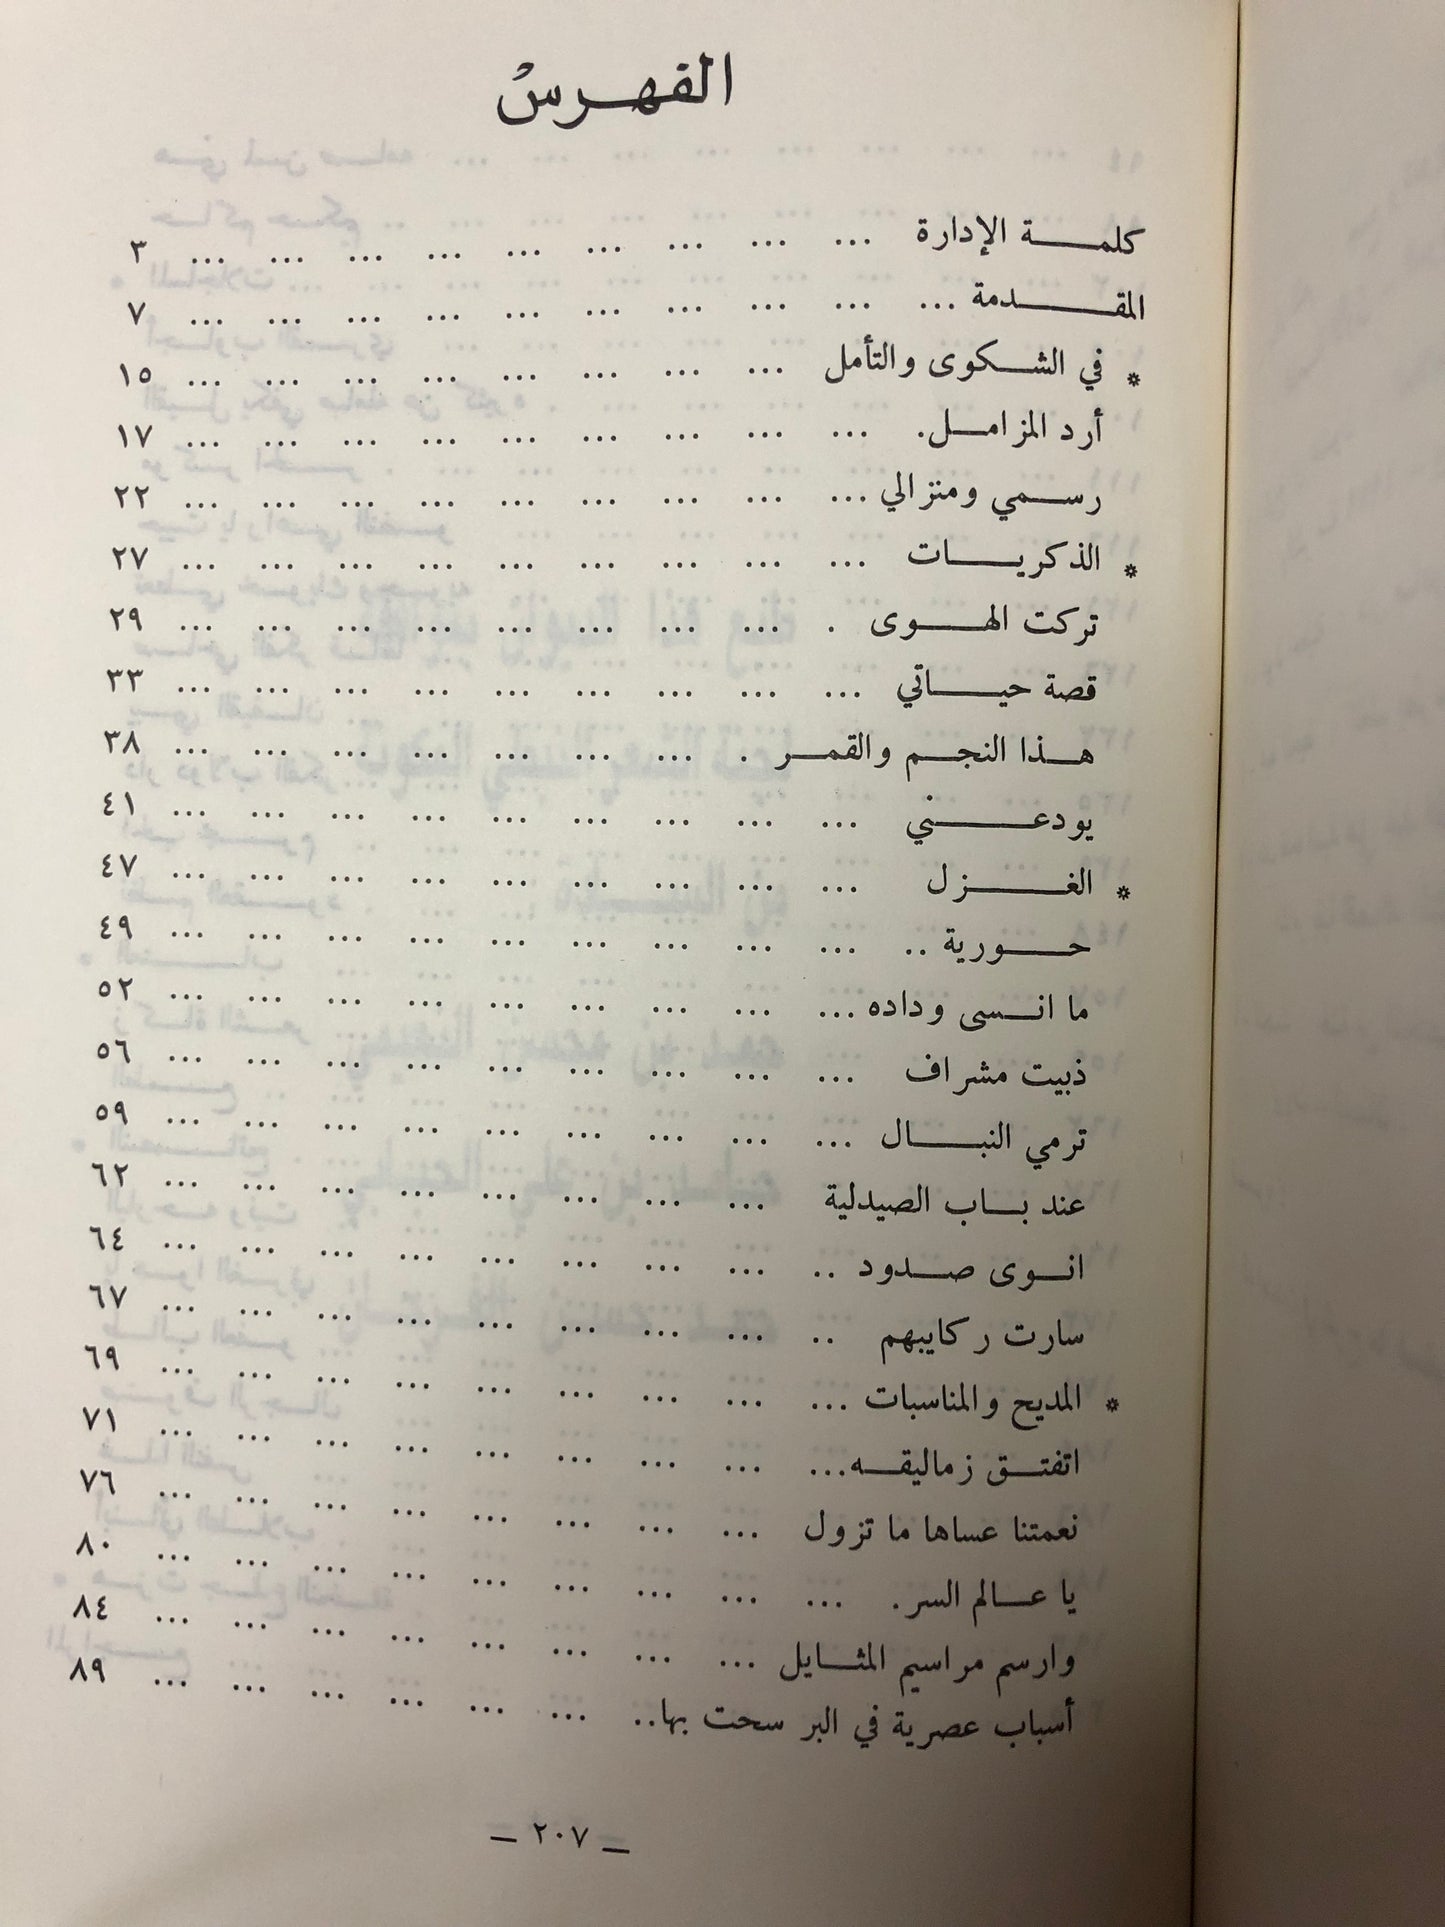 الفهرس
كلمة الإدارة ... ... ... ... ... ... ... ... ... ٣
المقدمة ... ... ... ... ... ... ... ... ... ... ٧
* في الشكوى والتأمل ... ... ... ... ... ... ... ... ١٥
أرد المزامل. ... ... ... ... ... ... ... ... ... ١٧
رسمي ومنزالي ... ... ... ... ... ... ... ... ... ٢٢
* الذكريات ... ... ... ... ... ... ... ... ... ٢٧
تركت الهوى . ... ... ... ... ... ... ... ... ٢٩
قصة حياتي ... ... ... ... ... ... ... ... ... ٣٣
هذا النجم والقمر . ... ... ... ... ... ... ... ٣٨
يودعني ... ... ... ... ... ... ... ... ... ٤١
* الغزل ... ... ... ... ... ... ... ... ... ٤٧
حورية .. ... ... ... ... ... ... ... ... ... ٤٩
ما انسى وداده ... ... ... ... ... ... ... ... ... ٥٢
ذبيت مشراف ... ... ... ... ... ... ... ... ... ٥٦
ترمي النبال ... ... ... ... ... ... ... ... ... ٥٩
عند باب الصيدلية ... ... ... ... ... ... ... ... ٦٢
انوى صدود .. ... ... ... ... ... ... ... ... ٦٤
سارت ركايبهم .. ... ... ... ... ... ... ... ... ٦٧
* المديح والمناسبات ... ... ... ... ... ... ... ... ... ٦٩
اتفتق زماليقه... ... ... ... ... ... ... ... ... ٧١
نعمتنا عساها ما تزول ... ... ... ... ... ... ... ... ٧٦
يا عالم السر . ... ... ... ... ... ... ... ... ... ٨٠
وارسم مراسيم المثايل ... ... ... ... ... ... ... ... ٨٤
أسباب عصرية في البر سحت بها.. ... ... ... ... ... ... ٨٩
— ٢٠٧ —